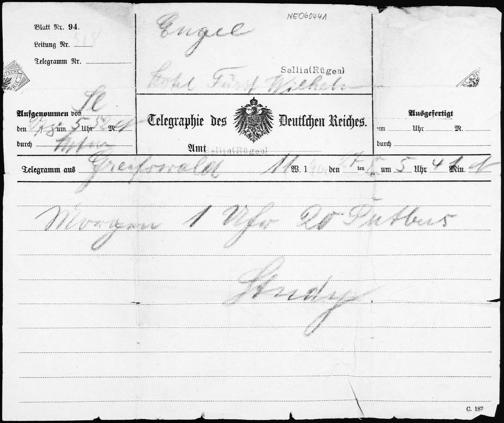 Blatt Nr. 94.
Leitung Nr.
Telegramm Nr.
NE060441
Engel
Hotel Fürst Wilhelm
Sellin(Rügen)
Aufgenommen von Sl.
den um 5 Uhr
durch
Telegraphie des Deutschen Reiches.
Amt Sellin(Rügen)
Ausgefertigt
um Uhr M.
durch
Telegramm aus Greifswald 11 W. 1 den ten um 5 Uhr 41 Min.
Morgen 1 Uhr 20 Putbus
Study.
C. 187